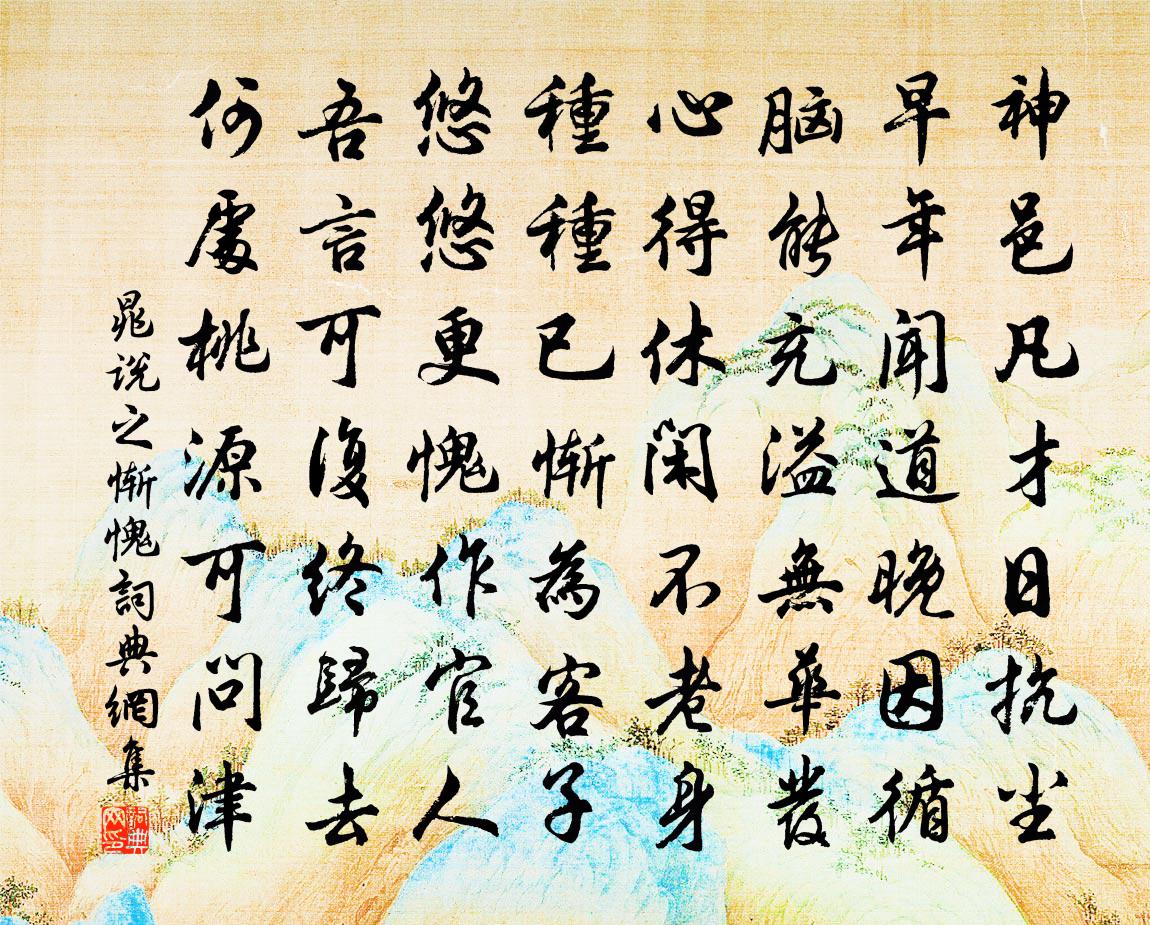 神邑凡才日抗尘
早年闻道晚因循
脑能充溢無華發
心得休闲不老身
種種已慚為客子
悠悠更愧作官人
吾言可復終歸去
何處桃源可問津
晁说之慚愧詞典網集
詞典網印